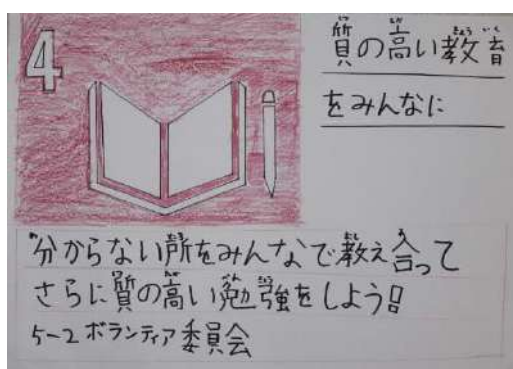 4
質の高い教育
をみんなに
分からない所をみんなで教え合って
さらに質の高い勉強をしよう!!
5-2 ボランティア委員会